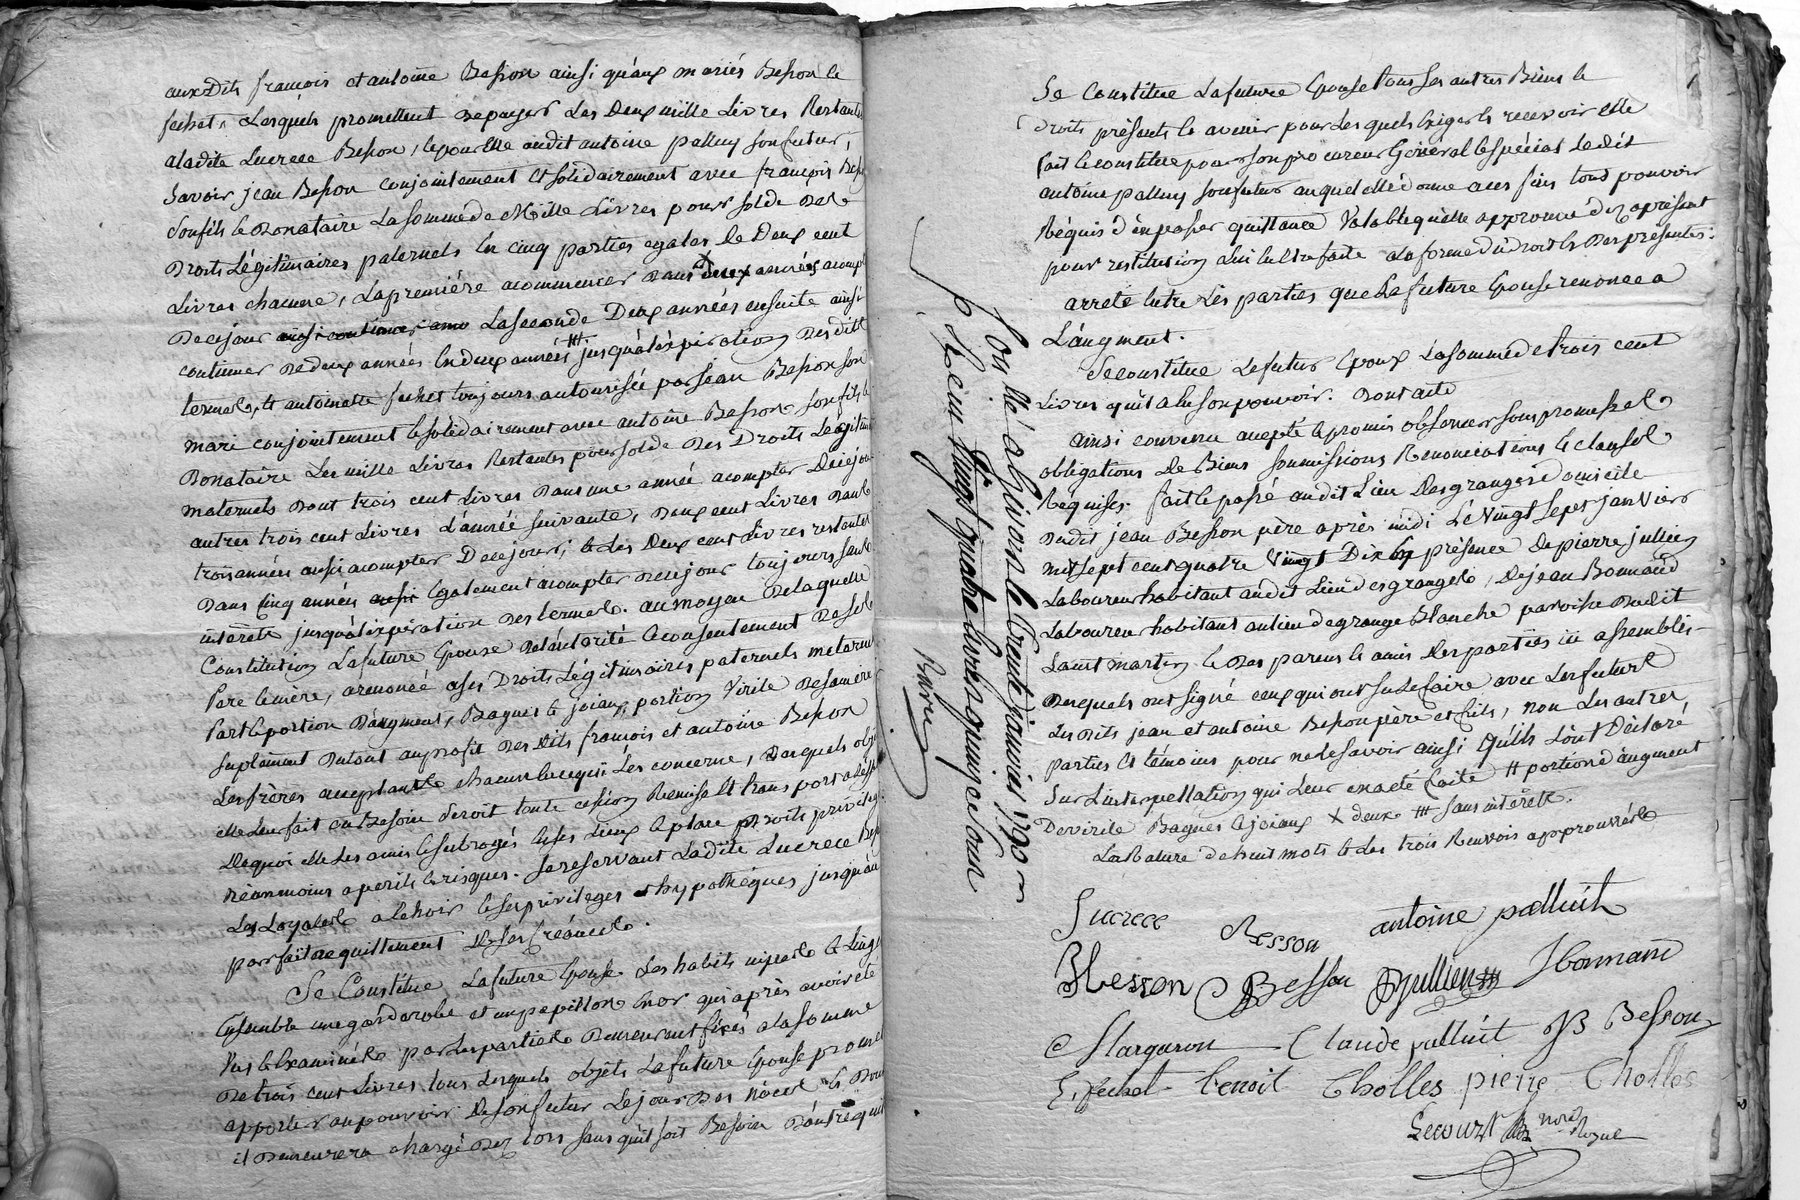 auxdits françois et antoine Besson ainsi qu'aux mariés Besson le
fechet, Lesquels promettent de payer Les Deux mille Livres Restantes
a ladite Lucrece Besson, le pour Elle audit antoine palluy son futur,
Savoir jean Besson conjointement Et solidairement avec françois Bess
son fils le Donataire La somme de Mille Livres pour solde Des
Droits Légitimaires paternels En cinq parties egales de Deux cent
Livres chacune, La première a commencer Dans deux années a compt
De ce jour La seconde Deux années ensuite ainsi
continuer De deux années En deux années jusqu'a l'expiration Desdits
termes, Et antoinette fechet toujours autourisée par jean Besson son
mari conjointement le solidairement avec antoine Besson son fils le
Donataire Les mille Livres Restantes pour solde Des Droits Légitim
maternels Dont trois cent Livres Dans une année a compter De ce jour
autres trois cent Livres L'année suivante, Deux cent Livres Dans
trois années aussi a compter De ce jour, le Les Deux cent Livres restantes
Dans cinq années Egalement a compter De ce jour toujours sans
intérêts jusqu'a l'expiration Des termes. au moyen De laquelle
Constitution La future Epouse De l'autorité le consentement De ses
Pere le mère, a renoncé a ses Droits Légitimaires paternels maternels
Part le portion D'augment, Bagues le joiaux, portion Virile De sa mère
suplément Du tout au profit Desdits françois et antoine Besson
Les frères acceptants chacun En ce qui Les concerne, Desquels obje
elle Leur fait En Besoin seroit toute cession Remise Et transport a l'eff
De quoi elle Les a mis le subrogés En ses Lieux le place Droits privileg
Néanmoins a perils le risques. Se reservant Ladite Lucrece Bess
Les Loyales a le hoir le ses privileges et hypotheques jusqu'au
parfait acquittement De ses créances.
Se Constitue La future Epouse Les habits nipes le Linge
Ensemble une garderobe et un papillon En or qui après avoir été
Vus le Examinés par Les parties Demeurent fixés a la somme
De trois cent Livres, tous Lesquels objets La future Epouse promet
apporter au pouvoir De son futur Le jour Des nôces le Dont
il Demeurera chargé Dez Lors sans qu'il soit Besoin D'autre quit
Se Constitue La future Epouse tous ses autres Biens le
Droits présents le avenir pour Lesquels Exiger le recevoir elle
fait le constitue pour son procureur Général le spécial Ledit
antoine palluy son futur auquel elle donne a ces fins tous pouvoir
Réquis d'En passer quittance Valable qu'elle approuve dez a présent
pour restitution Lui En Etre faite a la forme du Droit le Des présentes.
arreté Entre Les parties que La future Epouse renonce a
L'augment.
Se constitue Le futur Epoux La somme de trois cent
Livres qu'il a En son pouvoir. Dont acte
ainsi convenu accepté le promis observer sous promesses
obligations De Biens soumissions Renonciations le clauses
Requises. fait le passé audit Lieu Des granges domicile
Dudit jean Besson père après midi Le Vingt sept janvier
mil sept cent quatre Vingt Dix En présence De pierre jullien
Laboureur habitant audit Lieu des granges, De jean Bonnand
Laboureur habitant au lieu de grange Blanche paroisse Dudit
Saint martin le Des parens le amis Des parties ici assemblés
Desquels ont signé ceux qui ont su Le faire avec Les futurs
Lesdits jean et antoine Besson père et fils, non Les autres
parties Et témoins pour ne Le savoir ainsi qu'ils L'ont Déclaré
sur L'interpellation qui Leur En a eté faite # portion d'augment
De virile Bagues le joiaux X deux ## sans intérêts.
La Rature de huit mots le Les trois Renvois approuvés
Lucrece Besson antoine palluit
JBesson Besson Pjullien JBonnand
Margaron Claude palluit JB Besson
fechet benoit Cholles pierre Cholles
Lecourt
Controlé a St givors le trente janvier 1790
vingt quatre livres quinze sous